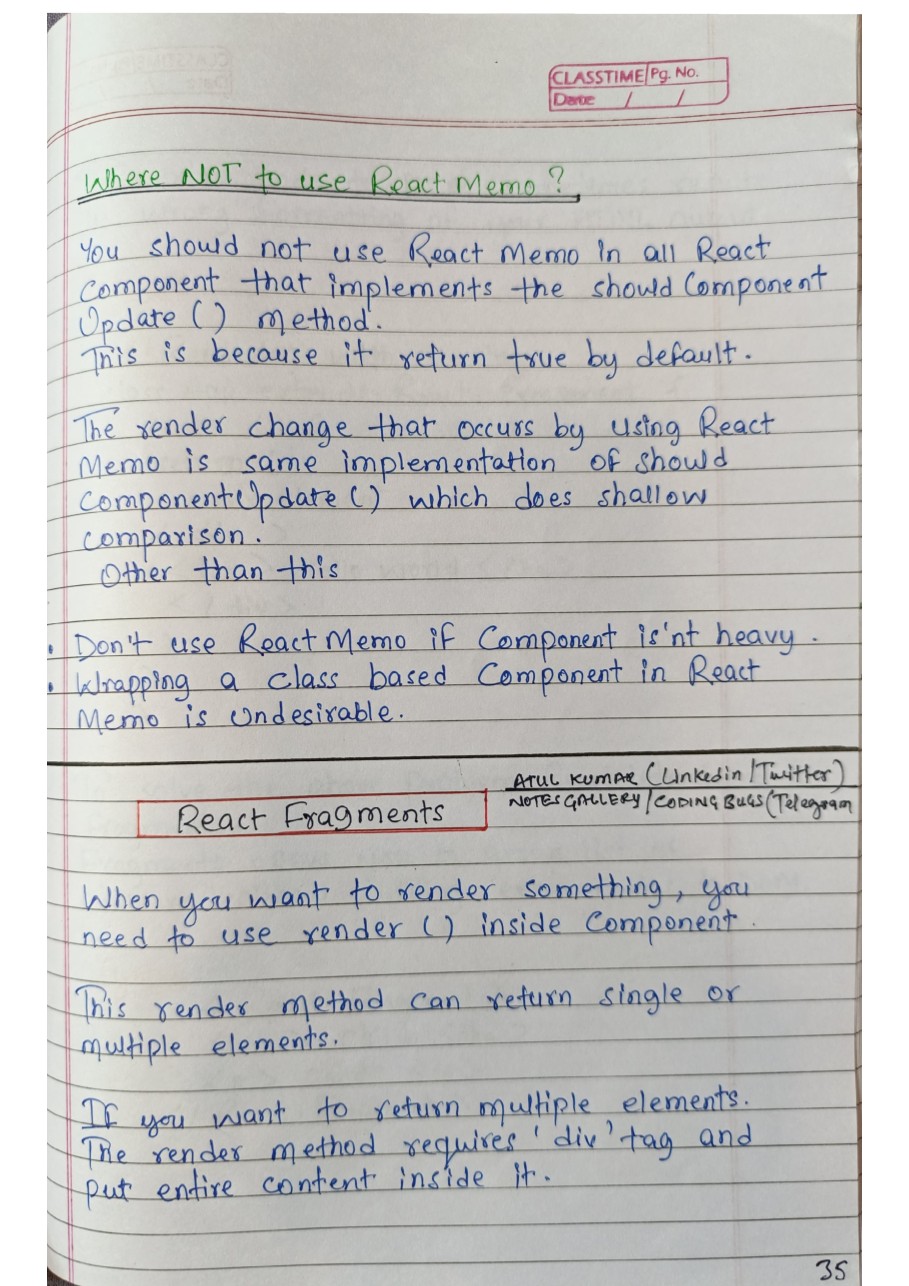 CLASSTIME Pg. No.
Date / /
Where NOT to use React Memo ?
You should not use React Memo in all React
Component that implements the should Component
Update ( ) method.
This is because it return true by default.
The render change that occurs by using React
Memo is same implementation of should
ComponentUpdate ( ) which does shallow
comparison.
Other than this
• Don't use React Memo if Component is'nt heavy.
• Wrapping a class based Component in React
Memo is undesirable.
ATUL KUMAR (Linkedin / Twitter)
NOTES GALLERY / CODING BUGS (Telegram
React Fragments
When you want to render something, you
need to use render ( ) inside Component.
This render method can return single or
multiple elements.
If you want to return multiple elements.
The render method requires 'div' tag and
put entire content inside it.
35